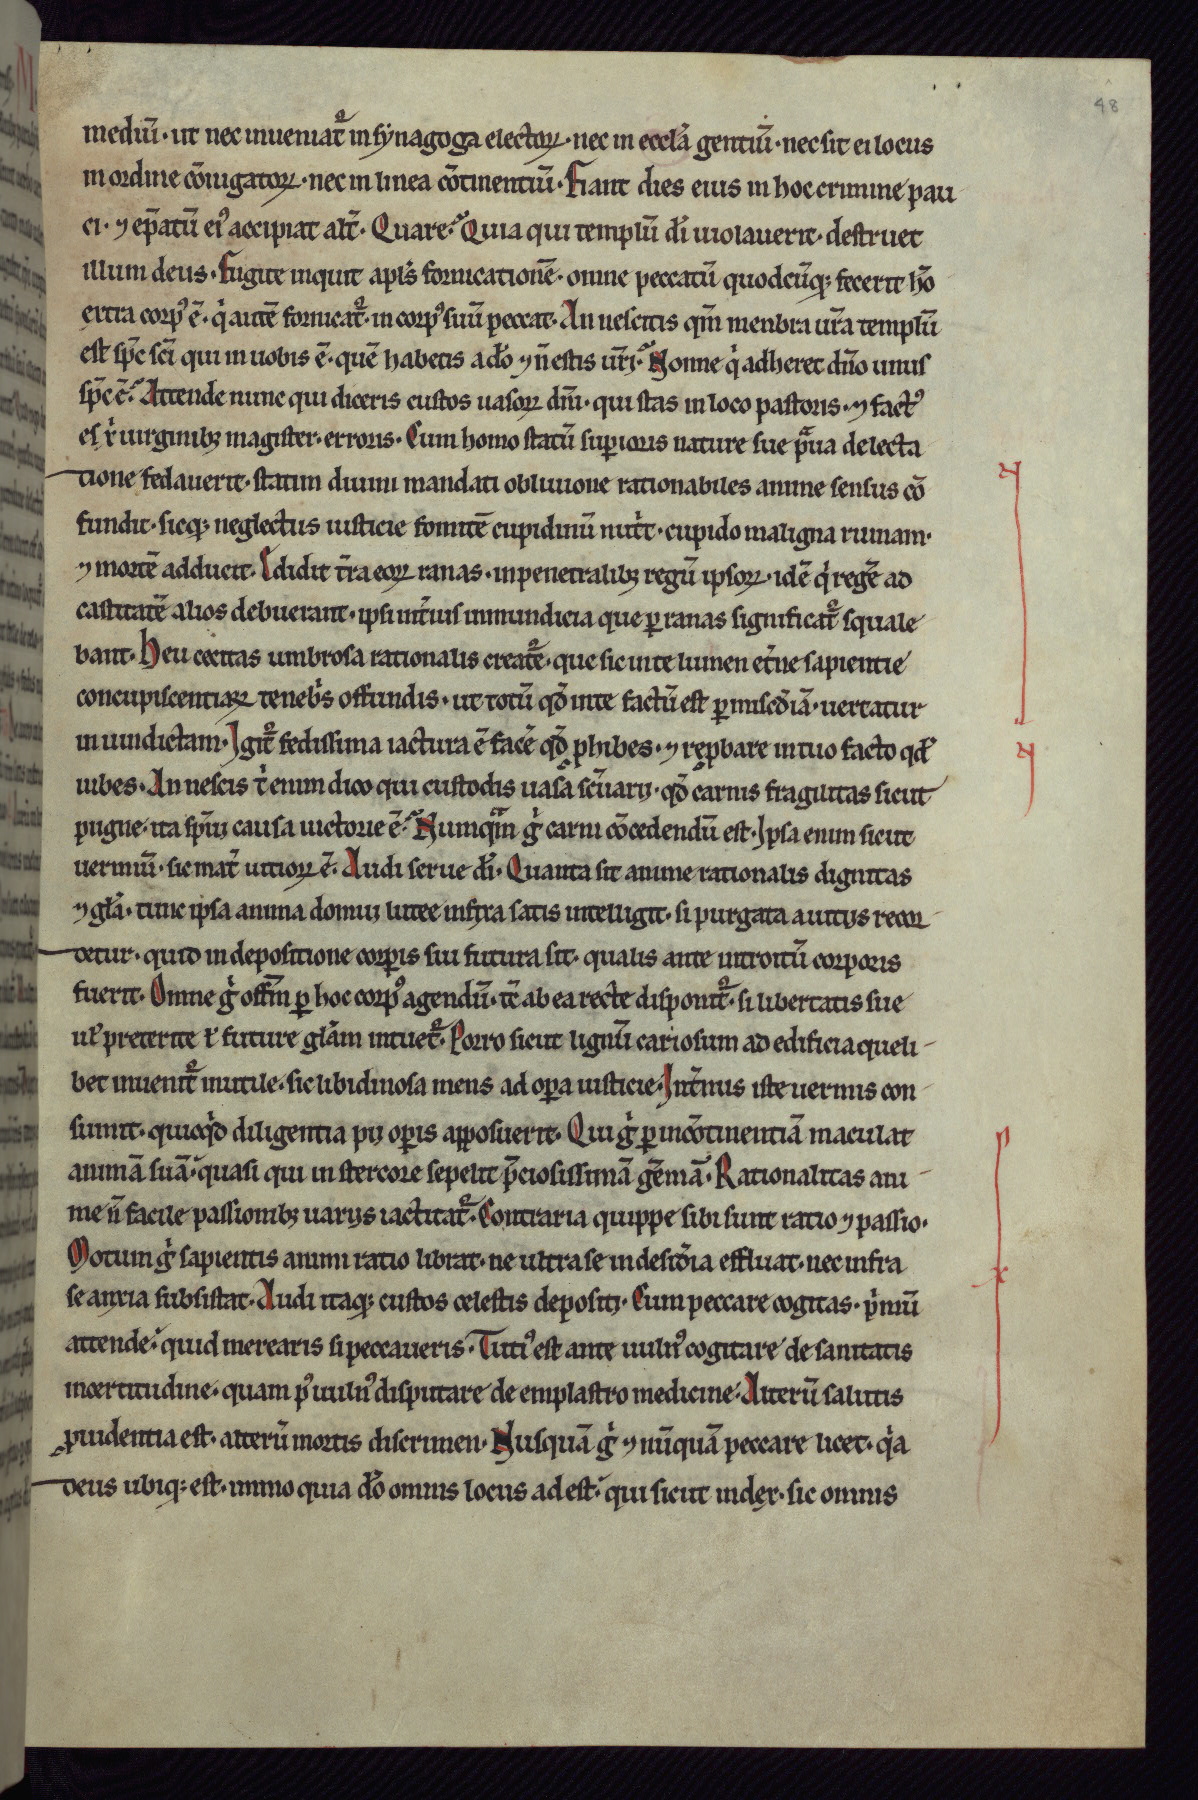 48
mediū· ut nec inueniat᷑ in synagoga electoꝝ· nec in eccl̄a gentiū· nec sit ei locus
in ordine cōiugatoꝝ· nec in linea cōtinentiū· Fiant dies eius in hoc crimine pau
ci· ⁊ ep̄atū eiꝰ accipiat alt̄· Quare? Quia qui templū dī uiolauerit· destruet
illum deus· Fugite inquit apl̄s fornicationē· omne peccatū quodcūq; fecerit hō
extra corpꝰ ē· qͥ autē fornicat᷑· in corpꝰ suū peccat· An nescitis qm̄ menbra ur̄a templū
est sp̄c sc̄i qui in uobis ē· quē habetis a dō ⁊ n̄ estis ur̄i? Nonne qͥ adheret dn̄o unus
sp̄c ē? Attende nunc qui diceris custos uasoꝝ dm̄· qui stas in loco pastoris· ⁊ factꝰ
es ł uirginibꝫ magister erroris· Cum homo statū suꝑioris nature sue pᷓua delecta
tione fedauerit· statim diuini mandati obliuione rationabiles anime sensus cō
fundit· sicq; neglectus iusticie fomitē cupidinū nutͥt· cupido maligna ruinam·
⁊ mortē adducit· Edidit t̄ra eoꝝ ranas· in penetralibꝫ regū ipsoꝝ· idē qͥ regē ad
castitatē alios debuerant· ipsi int̄ius inmundicia que ꝑ ranas significat᷑ squale
bant· Heu cecitas umbrosa rationalis creatᷓe· que sic in te lumen et̄ne sapientie
concupiscentiaꝝ tenebͥs offundis· ut totū qd̄ in te factū est ꝑ misc̄diā· uertatur
in uindictam· Igit᷑ fedissima iactura ē facē qd̄ ꝓhibes· ⁊ reꝓbare in tuo facto qd̄
iubes· An nescis t̄ enim dico qui custodis uasa sc̄uarij· qd̄ carnis fragilitas sicut
pugne· ita sp̄iū causa uictorie ē? Numqᷓm gͦ carni cōcedendū est· Ipsa enim sicut
uermiū· sic mat̄ uitioꝝ ē· Audi serue dī· Quanta sit anime rationalis dignitas
⁊ gl̄a· tunc ipsa anima domui lutee infixa satis intelligit· si purgata a uitijs recor
detur· quid in depositione corꝑis sui futura sit· qualis ante introitū corporis
fuerit· Omne gͦ offm̄ ꝑ hoc corpꝰ agendū· tē ab ea recte disponit᷑· si libertatis sue
ul̄ preterite ł future gl̄am intuet᷑· Porro sicut lignū cariosum ad edificia queli
bet inuenit᷑ inutile· sic libidinosa mens ad oꝑa iusticie· Int̄nus iste uermis con
sumit· quicqͥd diligentia pij oꝑis apposuerit· Qui gͦ ꝑ incōtinentiā maculat
animā suā· quasi qui in stercore sepelit p̄ciosissimā gēmā· Rationalitas ani
me n̄ facile passionibꝫ uarijs iactitat᷑· Contraria quippe sibi sunt ratio ⁊ passio·
Motum gͦ sapientis animi ratio librat· ne ultra se in desid̄ia effluat· nec infra
se anxia subsistat· Audi itaq; custos celestis depositi· Cum peccare cogitas· pͥmū
attende· quid merearis si peccaueris· Tutiꝰ est ante uulnꝰ cogitare de sanitatis
incertitudine· quam pꝰ uulnꝰ disputare de emplastro medicine· Alterū salutis
ꝓuidentia est· alterū mortis discrimen· Nusquā gͦ ⁊ nūquā peccare licet· qͥa
deus ubiq; est· immo quia dō omnis locus adest· qui sicut index· sic omnis